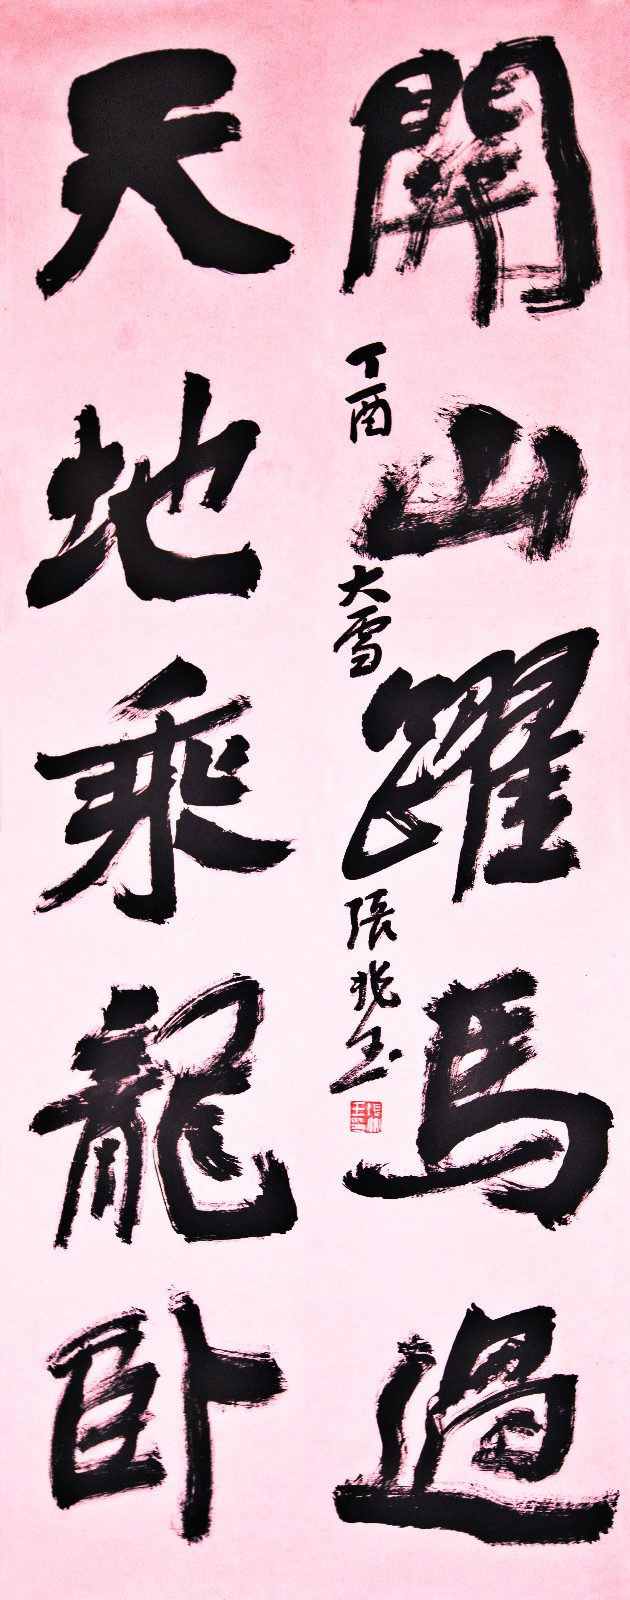 天地乘龍卧
關山躍馬過
丁酉大雪張兆玉